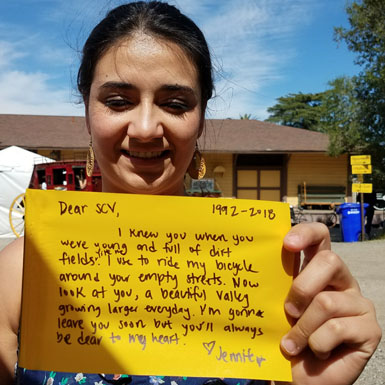 Dear SCV, 1992-2018
I knew you when you
were young and full of dirt
fields! I use to ride my bicycle
around your empty streets. Now
look at you, a beautiful valley
growing larger everyday. I'm gonna
leave you soon but you'll always
be dear to my heart.
♡ Jennifer